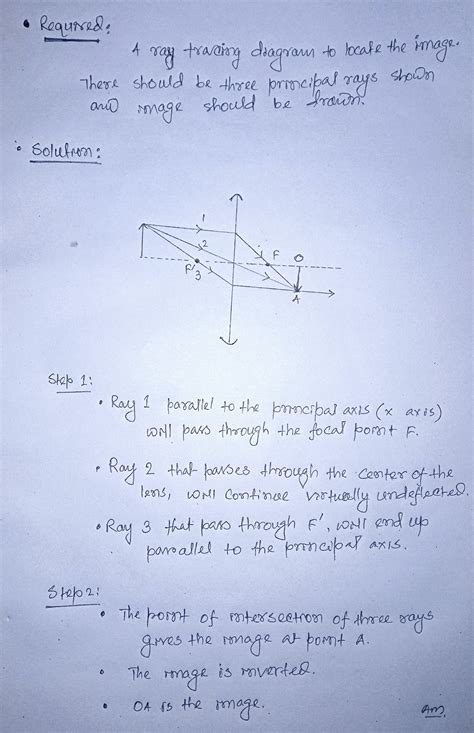 • Required:
A ray tracing diagram to locate the image.
There should be three principal rays shown
and image should be drawn.
• Solution:
1
2
F
O
F'
3
A
Step 1:
• Ray 1 parallel to the principal axis (x axis)
will pass through the focal point F.
• Ray 2 that passes through the center of the
lens, will continue virtually undeflected.
• Ray 3 that pass through F', will end up
parallel to the principal axis.
Step 2:
• The point of intersection of three rays
gives the image at point A.
• The image is inverted.
• OA is the image.
Ans.